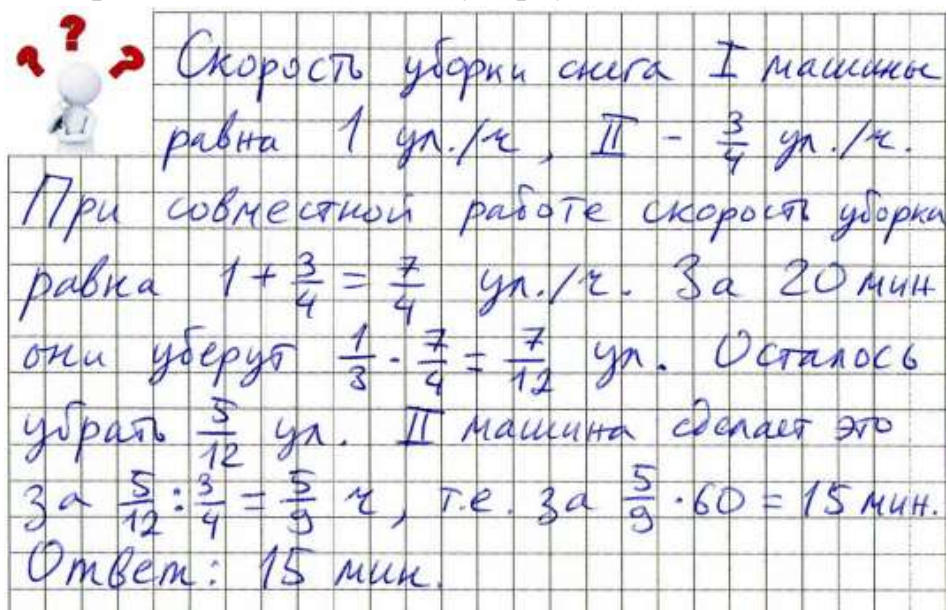 ? ? ?
Скорость уборки снега I машины
равна 1 ул./ч, II - 3/4 ул./ч.
При совместной работе скорость уборка
равна 1 + 3/4 = 7/4 ул./ч. За 20 мин
они уберут 1/3 · 7/4 = 7/12 ул. Осталось
убрать 5/12 ул. II машина сделает это
за 5/12 : 3/4 = 5/9 ч, т.е. за 5/9 · 60 = 15 мин.
Ответ: 15 мин.